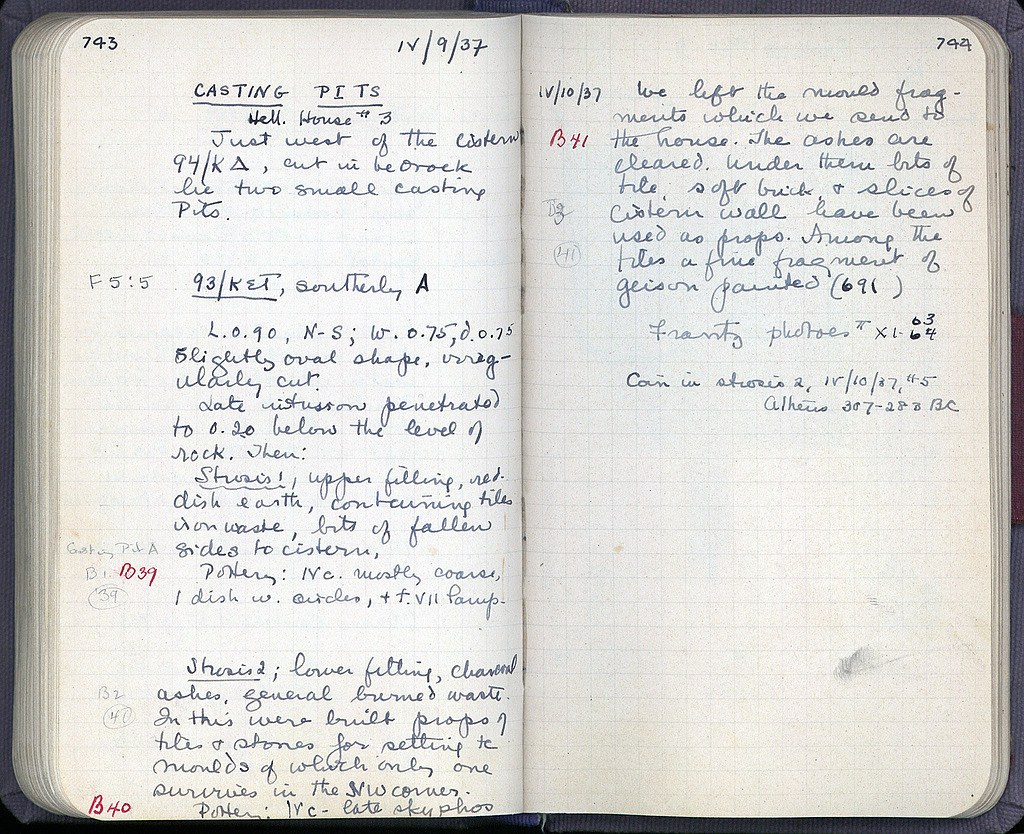 743
IV/9/37
CASTING PITS
Hell. House #3
Just west of the cistern
94/ΚΔ, cut in bedrock
lie two small casting
Pits.
F 5:5 93/ΚΣΤ, southerly A
L. 0.90, N-S; W. 0.75, d. 0.75
Slightly oval shape, irreg-
ularly cut.
Late intrusion penetrated
to 0.20 below the level of
rock. Then:
Strosis 1, upper filling, red-
dish earth, containing tiles
iron waste, bits of fallen
Casting Pit A sides to cistern,
B1 B39 Pottery: IVc. mostly coarse,
39 1 dish w. circles, + f. VII lamp.
Strosis 2; lower filling, charcoal
B2 ashes, general burned waste.
40 In this were built props of
tiles & stones for setting
moulds of which only one
survives in the NW corner.
B40 Pottery: IVc - late skyphos
744
IV/10/37 We left the mould frag-
ments which we send to
B41 the house. The ashes are
cleared. Under them bits of
tile, soft brick, & slices of
B3 cistern wall have been
used as props. Among the
41 tiles a fine fragment of
geison painted (691)
Frantz photoes XI-63
64
Coin in strosis 2, IV/10/37, #5
Athens 307-283 BC